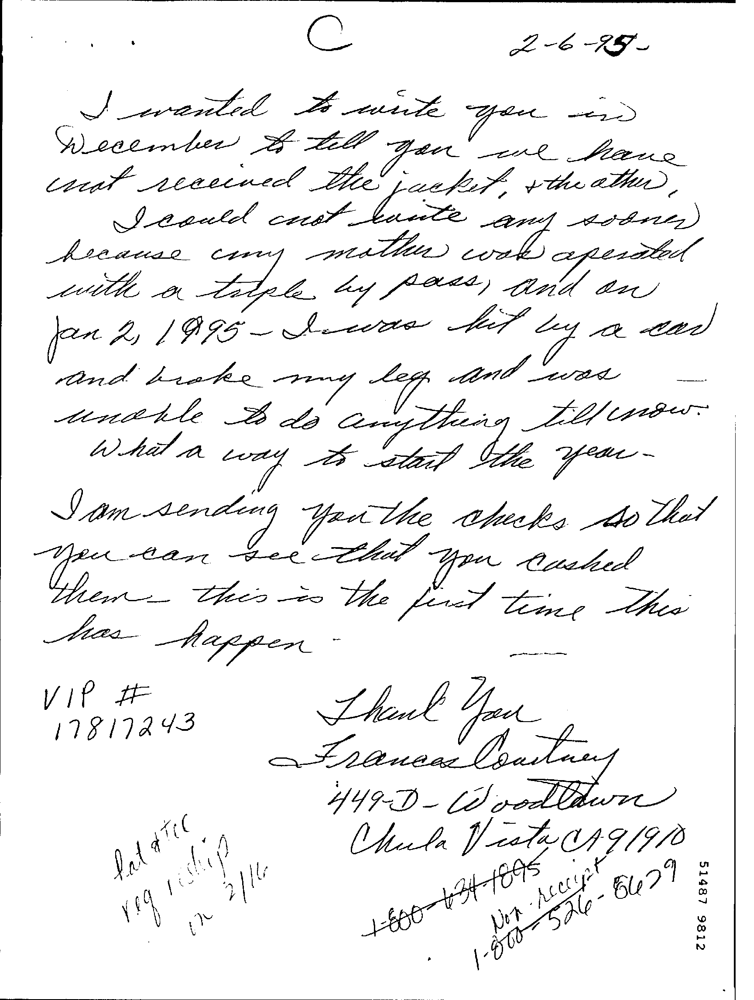 C
2-6-95-
I wanted to write you in
December to tell you we have
not received the jacket, & the other,
I could not write any sooner
because my mother was operated
with a triple by pass, and on
Jan 2, 1995 - I was hit by a car
and broke my leg and was
unable to do anything till now.
What a way to start the year -
I am sending you the checks so that
you can see that you cashed
them - this is the first time this
has happen -
VIP #
17817243
Thank You
Frances Courtney
449-D - Woodlawn
Chula Vista CA 91910
1-800-634-1895
Non-receipt
1-800-526-5629
req reship
in 2/16
51487 9812